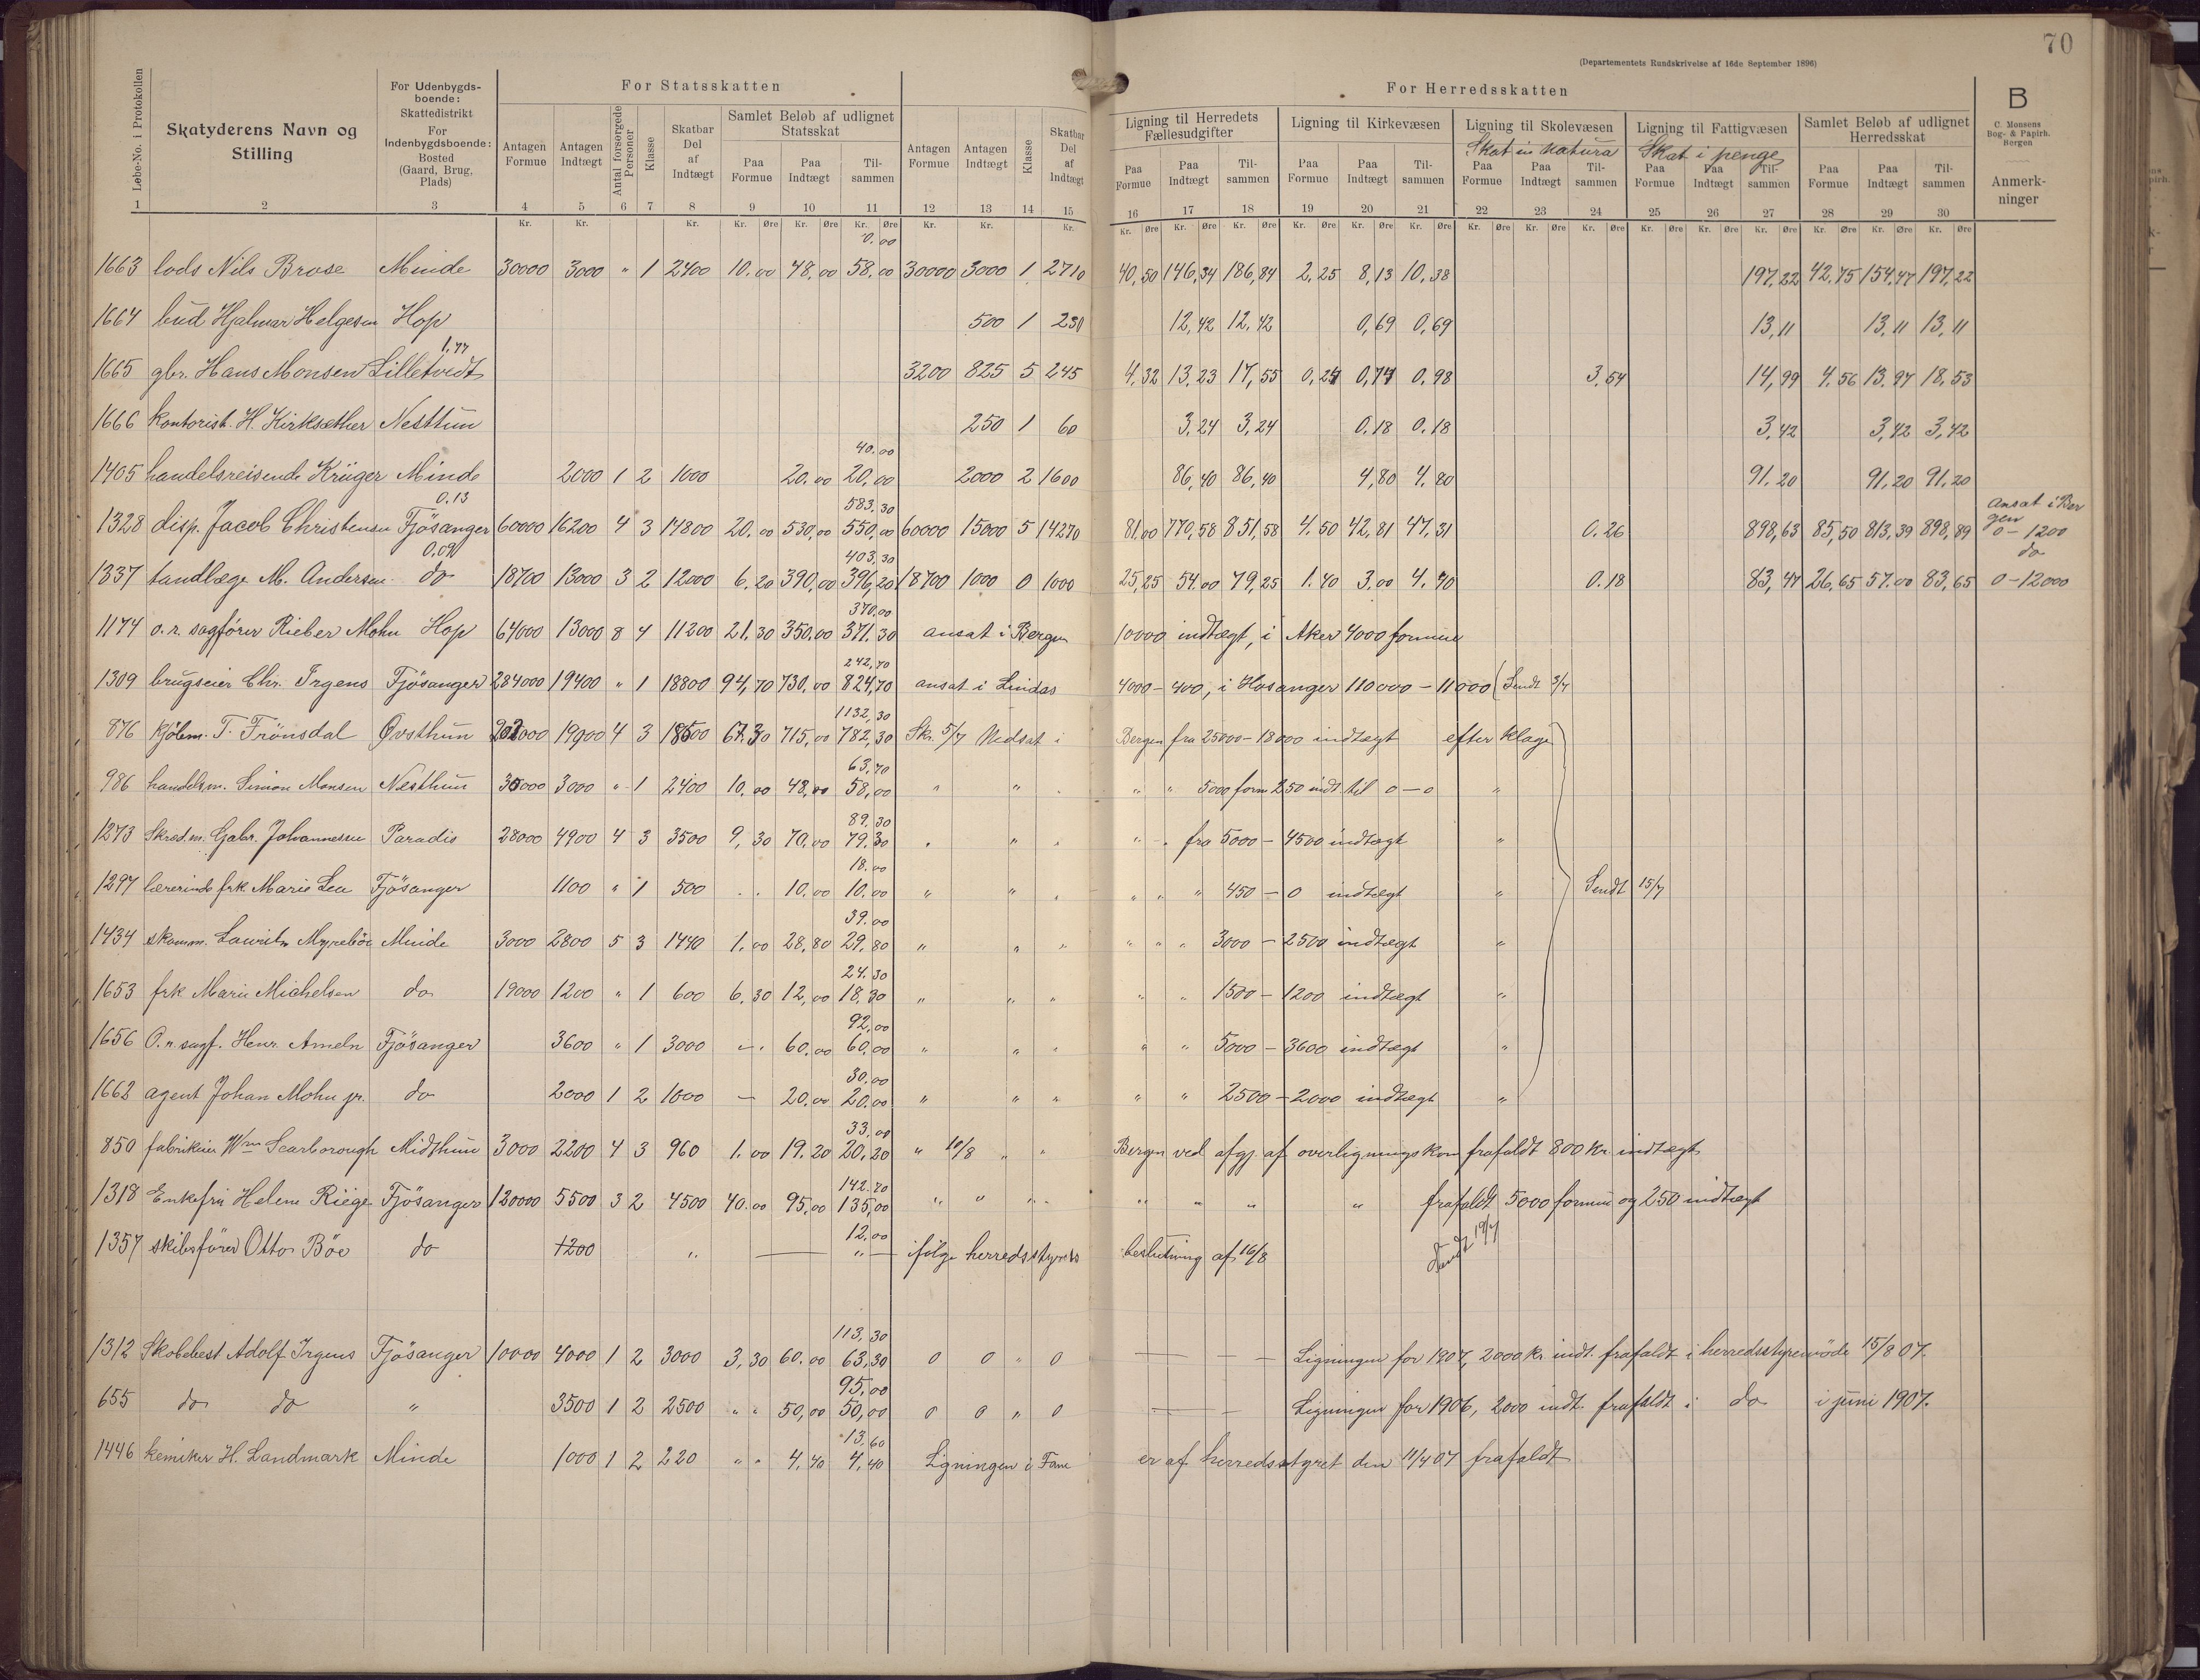 70
(Departementets Rundskrivelse af 16de September 1896)
For Statsskatten
For Herredsskatten
B
C. Monsens Bog- & Papirh. Bergen
Løbe-No. i Protokollen
Skatyderens Navn og Stilling
For Udenbygdsboende: Skattedistrikt For Indenbygdsboende: Bosted (Gaard, Brug, Plads)
Antagen Formue
Antagen Indtægt
Antal forsørgede Personer
Klasse
Skatbar Del af Indtægt
Samlet Beløb af udlignet Statsskat
Paa Formue Paa Indtægt Tilsammen
Antagen Formue
Antagen Indtægt
Klasse
Skatbar Del af Indtægt
Ligning til Herredets Fællesudgifter
Paa Formue Paa Indtægt Tilsammen
Ligning til Kirkevæsen
Paa Formue Paa Indtægt Tilsammen
Ligning til Skolevæsen
Skat in natura
Paa Formue Paa Indtægt Tilsammen
Ligning til Fattigvæsen
Skat i penge
Paa Formue Paa Indtægt Tilsammen
Samlet Beløb af udlignet Herredsskat
Paa Formue Paa Indtægt Tilsammen
Anmerkninger
1 2 3 4 5 6 7 8 9 10 11 12 13 14 15 16 17 18 19 20 21 22 23 24 25 26 27 28 29 30
Kr. Kr. Kr. Kr. Øre Kr. Øre Kr. Øre Kr. Kr. Kr. Kr. Øre Kr. Øre Kr. Øre Kr. Øre Kr. Øre Kr. Øre Kr. Øre Kr. Øre Kr. Øre Kr. Øre Kr. Øre Kr. Øre Kr. Øre Kr. Øre Kr. Øre
0.00
1663 lods Nils Brose Minde 30000 3000 " 1 2400 10.00 48,00 58.00 30000 3000 1 2710 40,50 146,34 186,84 2,25 8,13 10,38 197,22 42,75 154,47 197,22
1664 bud Hjalmar Helgesen Hop 500 1 230 12,42 12,42 0,69 0,69 13,11 13,11 13,11
1,77
1665 gbr. Hans Monsen Lilletvedt 3200 825 5 245 4,32 13,23 17,55 0,24 0,74 0,98 3,54 14,99 4,56 13,97 18,53
1666 kontorist. H. Kirksæther Nesttun 250 1 60 3,24 3,24 0.18 0.18 3,42 3,42 3,42
40.00
1405 handelsreisende Krüger Minde 2000 1 2 1000 20.00 20,00 2000 2 1600 86,40 86,40 4,80 4,80 91,20 91,20 91,20
0.13 583.30 Ansat i Bergen
1328 disp. Jacob Christensen Fjøsanger 60000 16200 4 3 14800 20.00 530,00 550,00 60000 15000 5 14270 81,00 770,58 851,58 4.50 42,81 47,31 0.26 898,63 85,50 813,39 898,89 0-1200
0.09 403.30 do
1337 tandlæge M. Andersen do 18700 13000 3 2 12000 6.20 390,00 396,20 18700 1000 0 1000 25,25 54.00 79,25 1.40 3,00 4,40 0.18 83,47 26,65 57.00 83,65 0-12000
370.00
1174 o.r. sagfører Rieber Mohn Hop 64000 13000 8 4 11200 21.30 350.00 371.30 ansat i Bergen 10000 indtægt, i Aker 4000 formue
242,70
1309 brugseier Chr. Irgens Fjøsanger 284000 19400 " 1 18800 94,70 730,00 824,70 ansat i Lindås 4000-400, i Hosanger 110000-11000 (Sendt 3/7
1132,30
876 Kjølem. T. Frønsdal Øvsthun 202000 19900 4 3 18500 67.30 715,00 782,30 Skr. 5/7 Nedsat i Bergen fra 25000-18000 indtægt efter klage
63,70
986 handelsm. Simon Monsen Nesthun 30000 3000 " 1 2400 10.00 48,00 58,00 " " " " " 5000 form 250 indt. til 0-0 "
89.30
1273 Skred.m. Gabr. Johannessen Paradis 28000 4900 4 3 3500 9,30 70,00 79.30 " " " " " fra 5000-4500 indtægt "
18.00
1297 lærerinde frk. Marie Lea Fjøsanger 1100 " 1 500 10.00 10.00 " " " " " " 450-0 indtægt " Sendt 15/7
39.00
1434 skomm. Lauritz Myrebøe Minde 3000 2800 5 3 1440 1.00 28,80 29,80 " " " " " " 3000-2500 indtægt "
24.30
1653 frk Marie Michelsen do 19000 1200 " 1 600 6,30 12,00 18,30 " " " " " 1500-1200 indtægt "
92,00
1656 O.r. sagf. Henr. Ameln Fjøsanger 3600 " 1 3000 - 60.00 60,00 " " " " " 5000-3600 indtægt "
30.00
1662 agent Johan Mohn jr. do 2000 1 2 1000 - 20.00 20.00 " " " " " 2500-2000 indtægt "
33,00
850 fabrikeier Wm Scarborough Midthun 3000 2200 4 3 960 1.00 19.20 20,20 " 10/8 " " Bergen ved afgj. af overligningskom frafaldt 800 kr. indtægt
142.70
1318 Enkefru Helene Rieger Fjøsanger 120000 5500 3 2 4500 40.00 95,00 135,00 " " " " " " " frafaldt 5000 formue og 250 indtægt
12,00
1357 skibsfører Otto Bøe do 1200 " " ifølge herredsstyrets beslutning af 16/8 Sendt 19/7
113,30
1312 Skolebest Adolf Irgens Fjøsanger 10000 4000 1 2 3000 3,30 60.00 63,30 0 0 " 0 Ligningen for 1907, 2000 kr. indt. frafaldt i herredsstyremøde 15/8 07.
95,00
655 do do " 3500 1 2 2500 " " 50,00 50,00 0 0 " 0 Ligningen for 1906, 2000 indt. frafaldt i do i juni 1907.
13,60
1446 kemiker H. Landmark Minde 1000 1 2 220 " " 4,40 4,40 Ligningen i Fane er af herredsstyret den 11/4 07 frafaldt